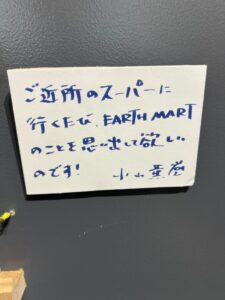 ご近所のスーパーに
行くたび、EARTH MART
のことを思い出して欲しい
のです! 小山薫堂